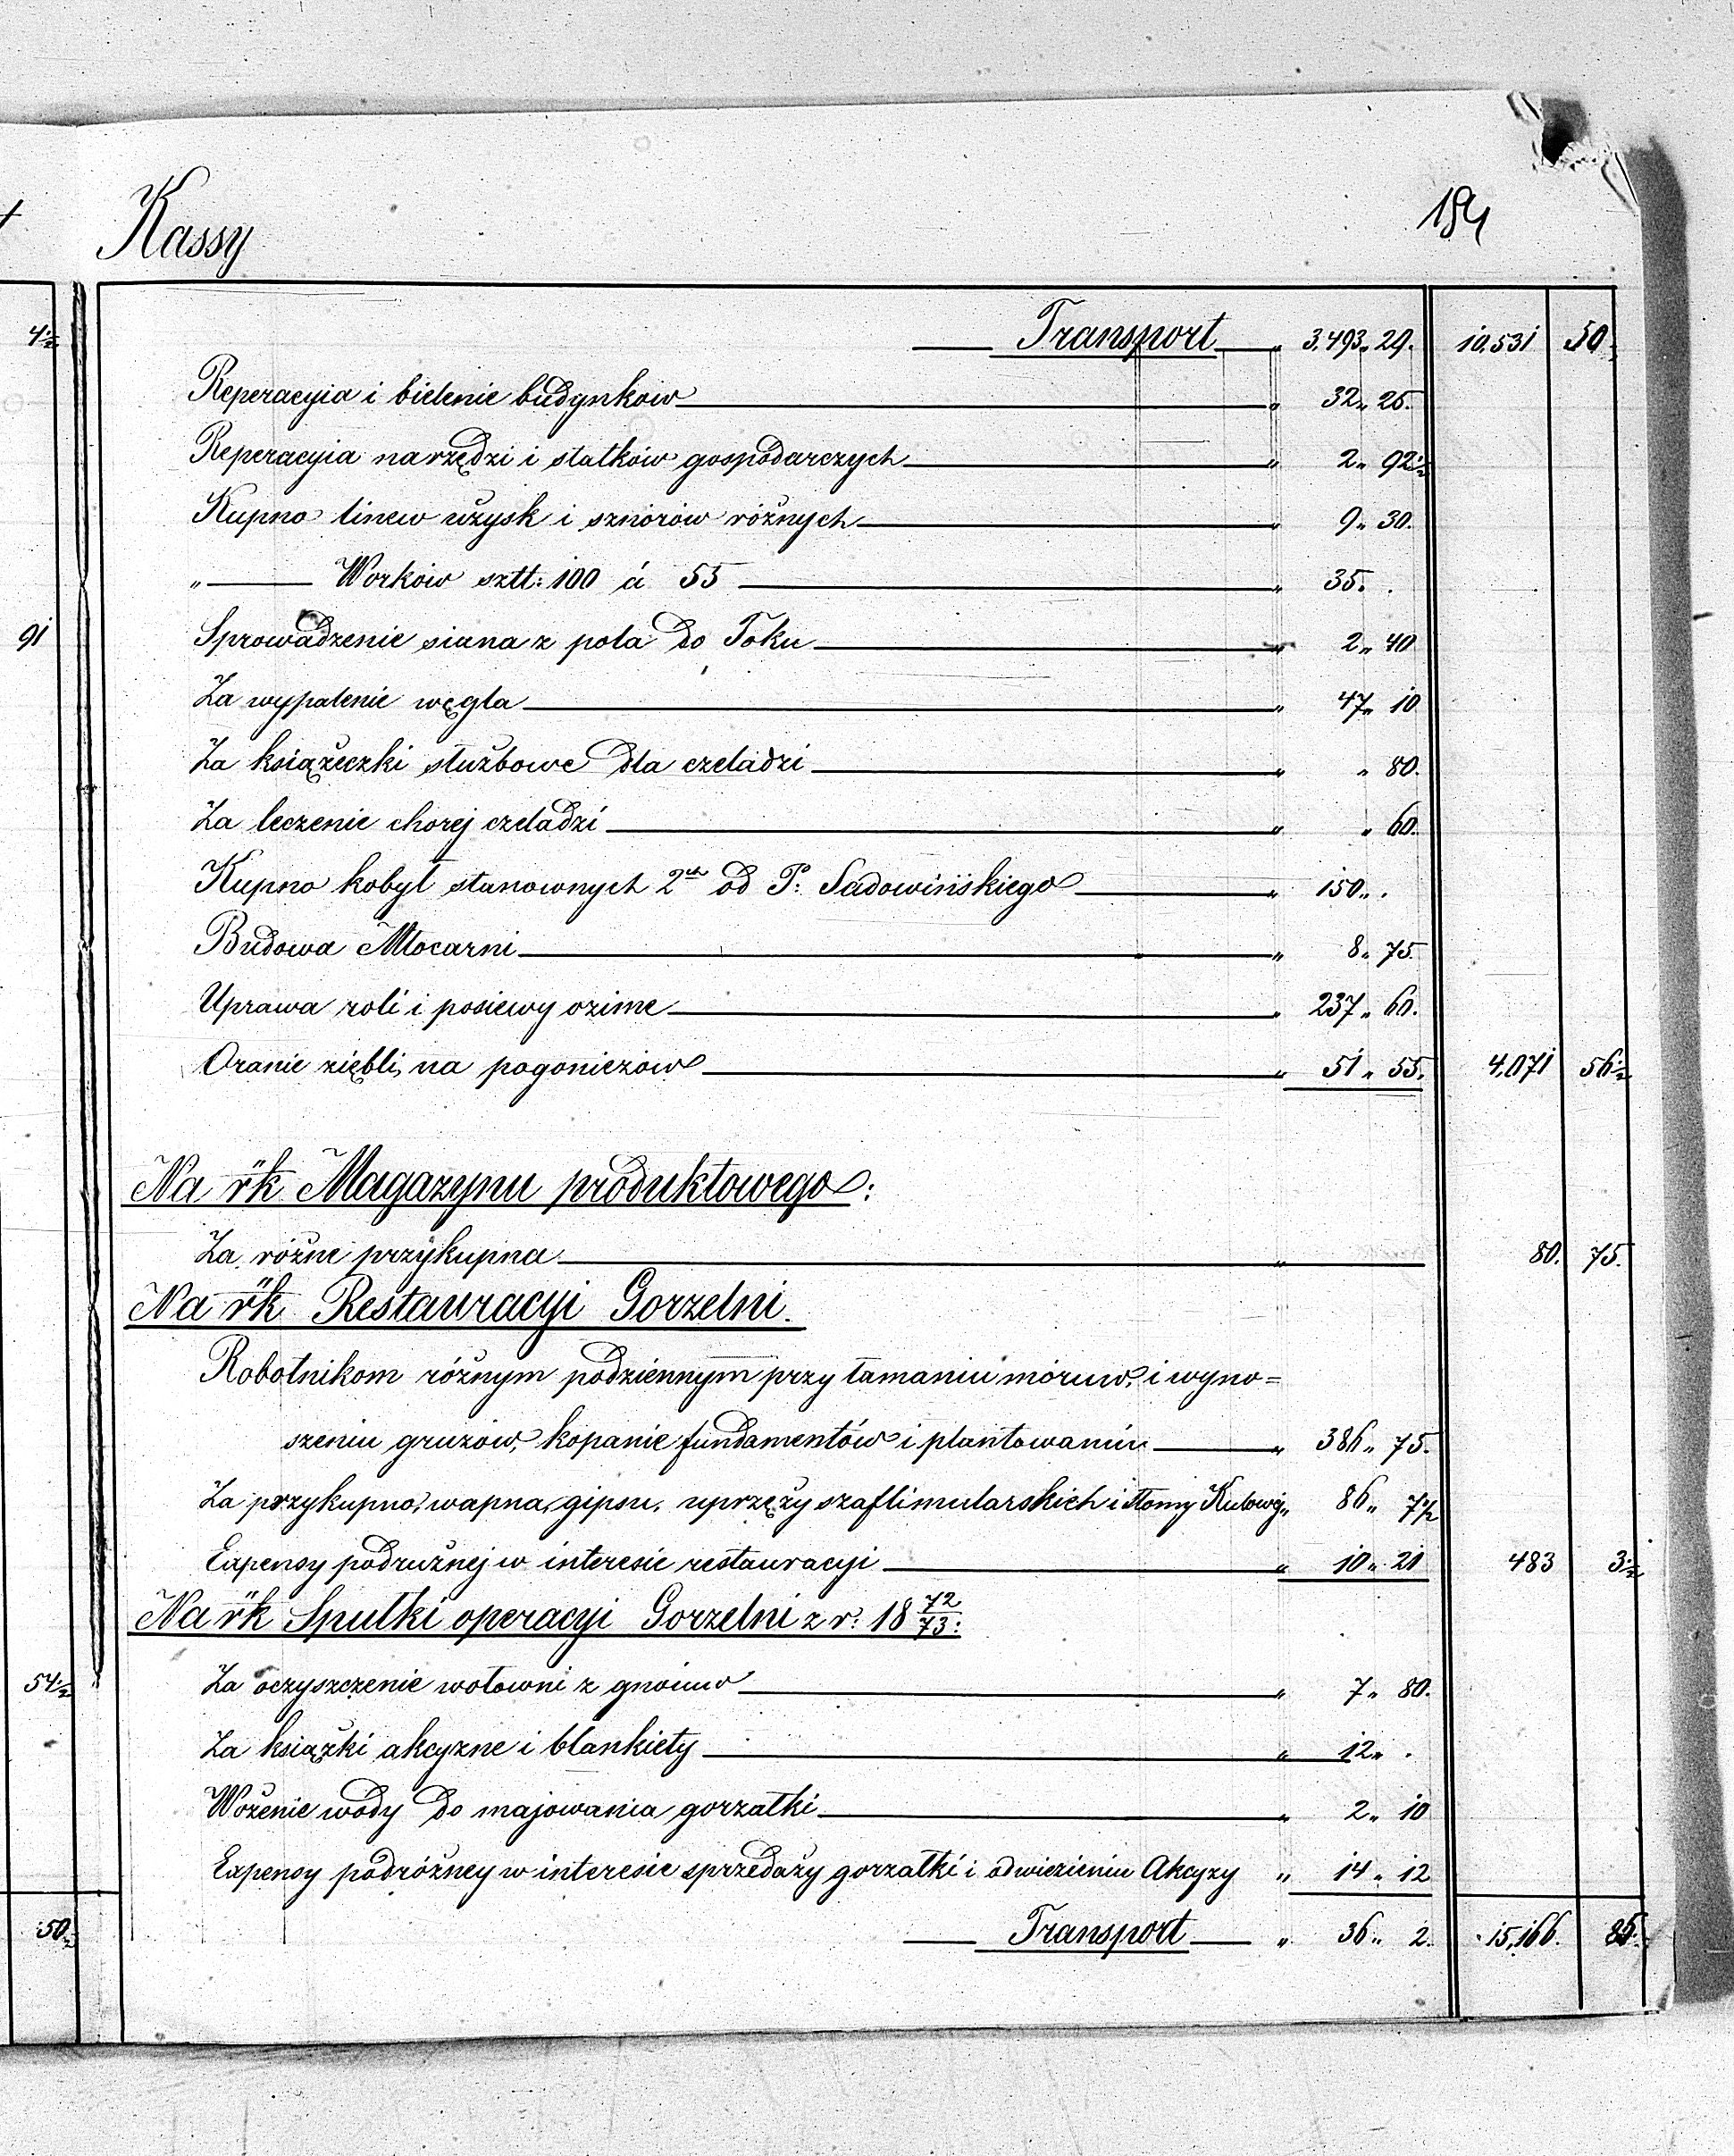 Kassy 184
4½
Transport „ 3.493„ 29. 10.531 50.
Reperacyia i bielenie budynków „ 32„ 25.
Reperacyia narzędzi i statków gospodarczych „ 2„ 92½
Kupno linew uzysk i sznórów różnych „ 9„ 30.
„ Worków sztt: 100 á 55 „ 35. .
91
Sprowadzenie siana z pola do Toku „ 2„ 40
Za wypalenie węgla „ 47„ 10
Za książeczki służbowe dla czeladzi „ „ 80.
Za leczenie chorej czeladzi „ „ 60.
Kupno kobył stanownych 2ch od P: Sadowińskiego „ 150„ .
Budowa Młocarni „ 8„ 75.
Uprawa roli i posiewy ozime „ 237„ 60.
Oranie ziębli, na pogoniczów „ 51„ 55. 4,071 56½
Na rk Magazynu produktowego:
Za różne przykupna „ 80. 75.
Na rk Restauracyi Gorzelni.
Robotnikom różnym podziennym przy łamaniu mórów, i wyno=
szeniu gruzów, kopanie fundamentów i plantowaniu „ 386„ 75.
Za przykupno, wapna, gipsu, uprzęży szaflimularskich i słomy Kulowéj„ 86„ 7½
Expensy podrużnej w interesie restauracyi „ 10„ 21 483 3½
Na rk Spułki operacyi Gorzelni z r: 18 72/73:
54½
Za oczyszczenie wołowni z gnoiuw „ 7„ 80.
Za książki akcyzne i blankiety „ 12„ .
Wożenie wody do majowania gorzałki „ 2„ 10
Expensy podróżney w interesie sprzedaży gorzałki i odwiezieniu Akcyzy „ 14„ 12
50½
Transport „ 36„ 2. 15,166. 85.